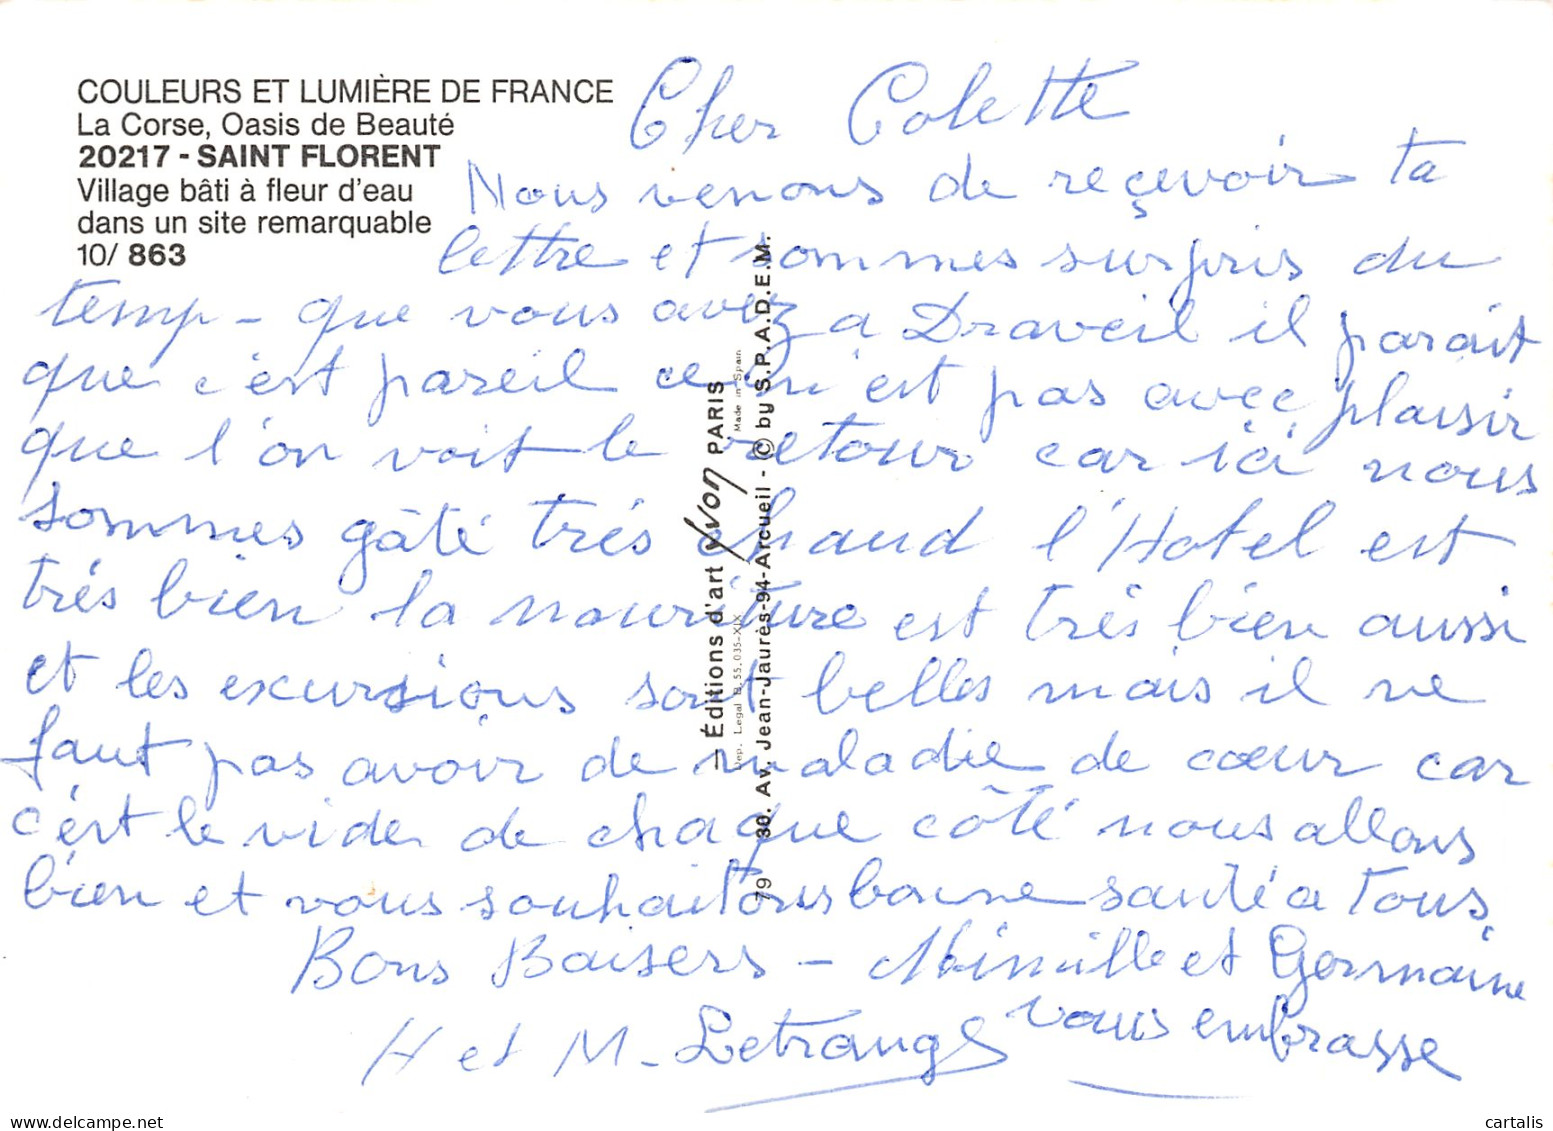 COULEURS ET LUMIÈRE DE FRANCE
La Corse, Oasis de Beauté
20217 - SAINT FLORENT
Village bâti à fleur d'eau
dans un site remarquable
10/ 863
Cher Colette
Nous venons de reçevoir ta
lettre et sommes surpris du
temp - que vous avez a Draveil il parait
que c'est pareil ce n'est pas avec plaisir
que l'on voit le retour car ici nous
sommes gâté trés chaud l'Hotel est
trés bien la nouriture est trés bien aussi
et les excursions sont belles mais il ne
faut pas avoir de maladie de cœur car
c'est le vide de chaque côté nous allons
bien et vous souhaitons bonne santé a tous
Bons Baisers - et Germaine
vous embrasse
H et M. Letrange
— Éditions d'art Yvon PARIS
Dep. Legal B.55.035-XIX Made in Spain
79 30. Av. Jean-Jaurès-94-Arcueil - © by S.P.A.D.E.M.
delcampe.net
cartalis